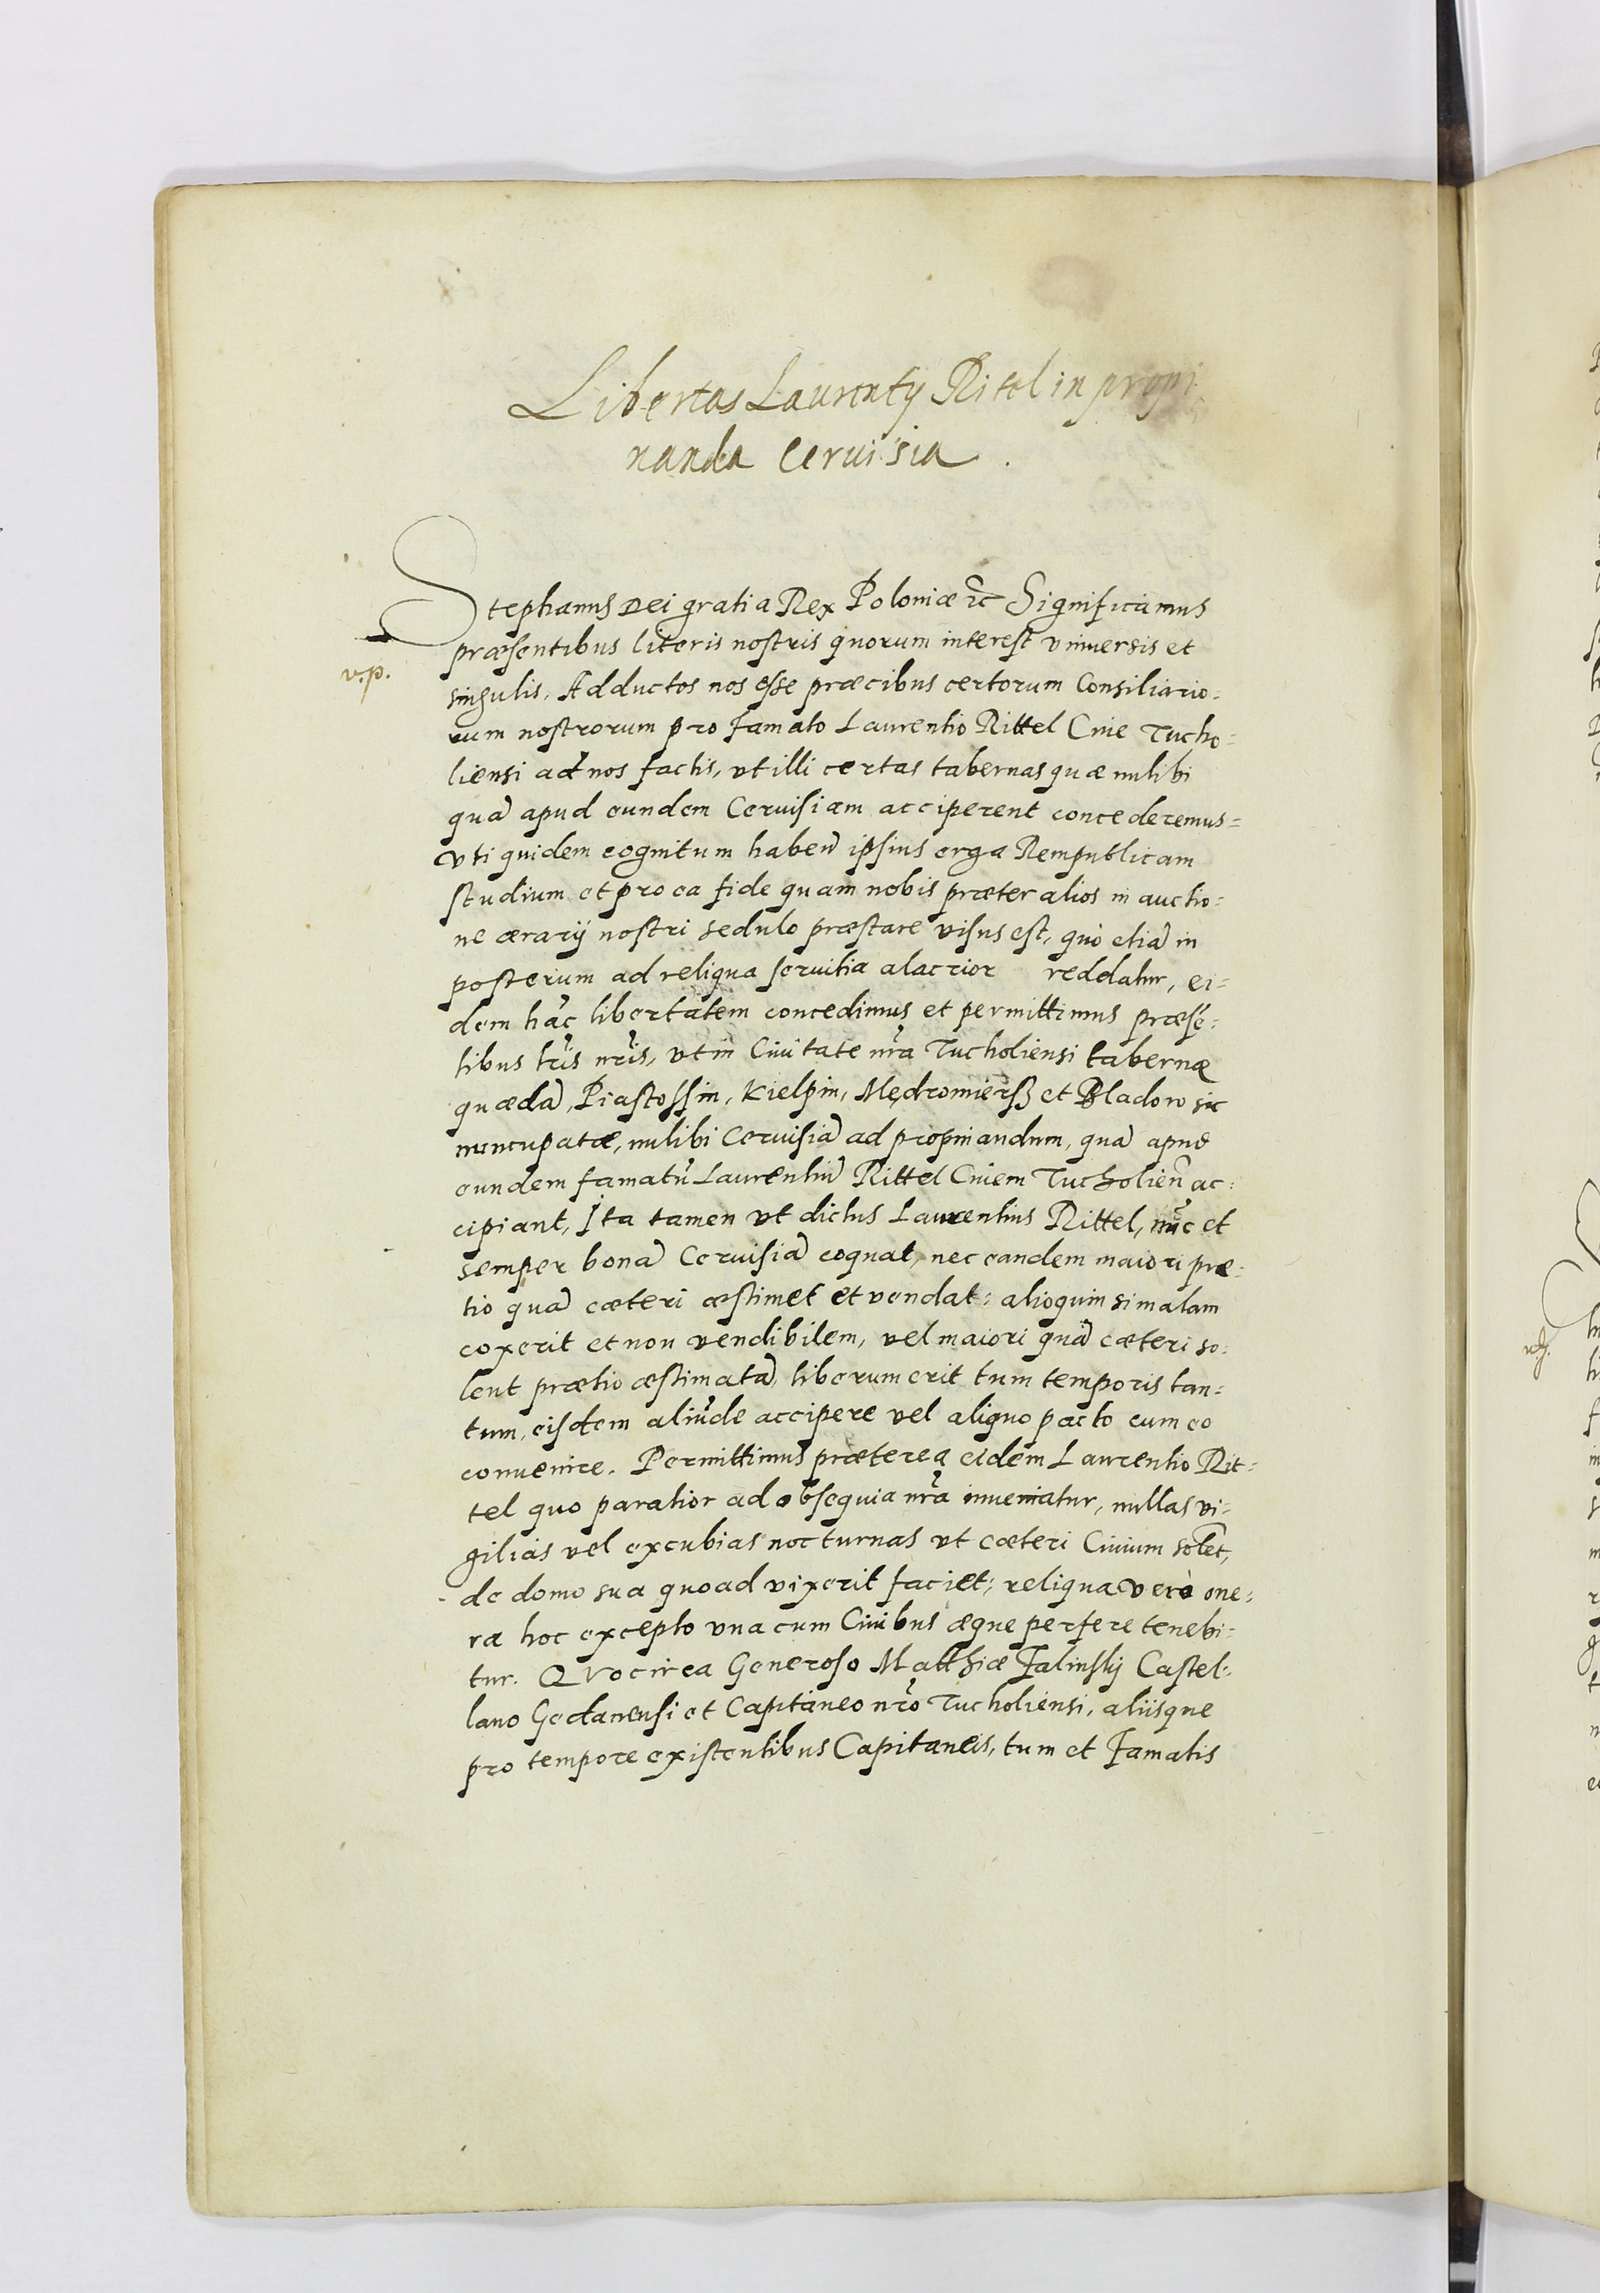 Libertas Laurentÿ Ritel in propi
nanda Cervisia.
Stephanus Dei gratia Rex Poloniæ ꝛc̃ Significamus
v.p.
præsentibus literis nostris quorum interest vniuersis et
singulis, Adductos nos esse præcibus certorum Consiliario=
rum nostrorum pro Famato Laurentio Rittel Ciue Tucho=
liensi ad nos factis, vt illi certas tabernas quæ nulibi
quã apud eundem Ceruisiam acciperent concederemus=
vti quidem cognitum haben̄ ipsius erga Rempublicam
studium et pro ea fide quam nobis præter alios in auctio=
ne ærarÿ nostri sedulo præstare visus est, quò etiã in
posterum ad reliqua seruitia alacrior reddatur, ei=
dem hãc libertatem concedimus et permittimus præsẽ=
tibus lr̃is nr̃is, vt in Ciuitate nr̃a Tucholiensi tabernæ
quædã, Piastossin, Kielpin, Mędromiersz et Bladowo sic
nuncupatæ, nulibi Ceruisiã ad propinandum, quã apud
eundem famatũ Laurentiũ Rittel Ciuem Tucholien̄ ac=
cipiant, Ita tamen vt dictus Laurentius Rittel, nũc et
semper bonã Ceruisiã coquat, nec eandem maiori præ=
tio quã cæteri æstimet et vendat: alioquin si malam
coxerit et non vendibilem, vel maiori quã cæteri so=
lent prætio æstimatã, liberum erit tum temporis tan=
tum, eisdem aliũde accipere vel aliquo pacto cum eo
conuenire. Permittimus præterea eidem Laurentio Rit=
tel quo paratior ad obsequia nr̃a inueniatur, nullas vi=
gilias vel excubias nocturnas vt cæteri Ciuium solẽt,
de domo sua quoad vixerit faciet; reliqua verò one=
ra hoc excepto vna cum Ciuibus æque perfere tenebi=
tur. Quocirca Generoso Matthiæ Zalinskÿ Castel=
lano Gedanensi et Capitaneo nr̃o Tucholiensi, aliisque
pro tempore existentibus Capitaneis, tum et Famatis